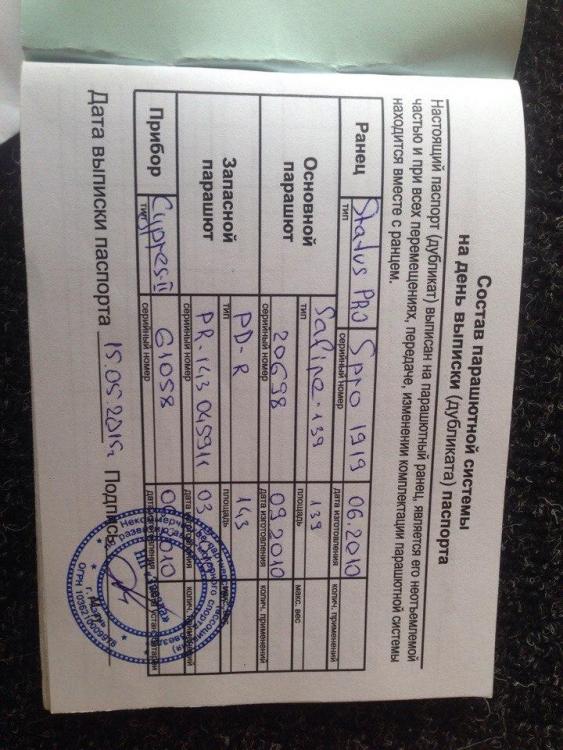 Состав парашютной системы
на день выписки (дубликата) паспорта
Настоящий паспорт (дубликат) выписан на парашютный ранец, является его неотъемлемой
частью и при всех перемещениях, передаче, изменении комплектации парашютной системы
находится вместе с ранцем.
Ранец Status PRO Spro 1919 06.2010
тип серийный номер дата изготовления колич. применений
Основной парашют Safire-139 139
тип площадь макс. вес
20698 09.2010
серийный номер дата изготовления колич. применений
Запасной парашют PD-R 143
тип площадь
PR-143 045911 03
серийный номер дата изготовления колич.
Прибор Cypres II G1058
тип серийный номер
Дата выписки паспорта 15.05.2015г Подпись
г. Рязань